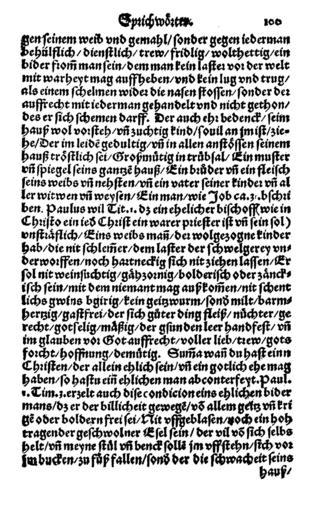 Sprichwörter. 100
gen seinem weib vnd gemahl/ sonder gegen iederman
behülflich/ dienstlich/ trew/ fridlig/ wolthettig/ ein
bider from̄ man sein/ dem man kein laster vor der welt
mit warheyt mag auffheben/ vnd kein lug vnd trug/
als einem schelmen wider die nasen stossen/ sonder der
auffrecht mit iederman gehandelt vnd nicht gethon/
des er sich schemen darff. Der auch eh: bedenck/ sein
hauß wol vorsteh/ vn̄ zuchtig kind/ souil an jm ist/ zie-
he/ Der im leidē gedultig/ vn̄ in allen anstössen seinem
hauß tröstlich sei/ Großmütig in trübsal/ Ein muster
vn̄ spiegel seins gantzē hauß/ Ein brüder vn̄ ein fleysch
seins weibs vn̄ nehsten/ vn̄ ein vater seiner kinder vn̄ al
ler witwen vn̄ weysen/ Ein man/ wie Job ca.3. bschri
ben. Paulus wil Tit.1. dz ein ehelicher bischoff wie in
Christo ein ieđ Christ ein warer priester ist vn̄ sein sol)
vnsträflich/ Eins weibs man/ der wolgezogne kinder
hab/ die nit schlemer/ dem laster der schwelgerey vn-
derworffen/ noch hartneckig sich nit ziehen lassen/ Er
sol nit weinsuchtig/ gähzornig/ bolderisch oder zänck-
isch sein/ mit dem niemant mag außkomen/ nit schent
lichs gwins bgirig/ kein geitzwurm/ sonđ milt/ barm-
hertzig/ gastfrei/ der sich güter ding fleiß/ nüchter/ ge
recht/ gotselig/ mäßig/ der gsunden leer handfest/ vn̄
im glauben vor Got auffrecht/ voller lieb/ trew/ gots
forcht/ hoffnung/ demütig. Sum̄a wan̄ du hast einn
Christen/ der allein ehlich sein/ vn̄ ein gotlich ehe mag
haben/ so hastu ein̄ ehlichen man abconterfeyt. Paul.
1. Tim.3. erzelt auch dise condicion eins ehlichen bider
mans/ dz er der billicheit gewegē/ vō allem getz vn̄ kri
gē oder boldern frei sei/ Nit vffgeblasen/ noch ein hoh
tragender geschwolner Esel sein/ der vil vō sich selbs
helt/ vn̄ meyne stül vn̄ benck sollē im vffstehn/ sich vor
jm bucken/ zu füß fallen/ sonđ der die schwacheit seins
hauß/